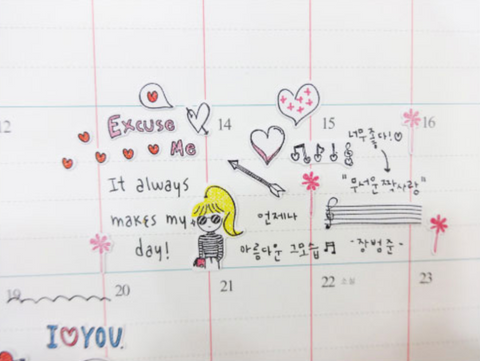 12
Excuse
14
15
16
너무좋다!♡
Me
It always
"무서운 짝사랑"
makes my
언제나
day!
아름다운 그모습
-장범준-
19
20
21
22 소설
23
I♡YOU.